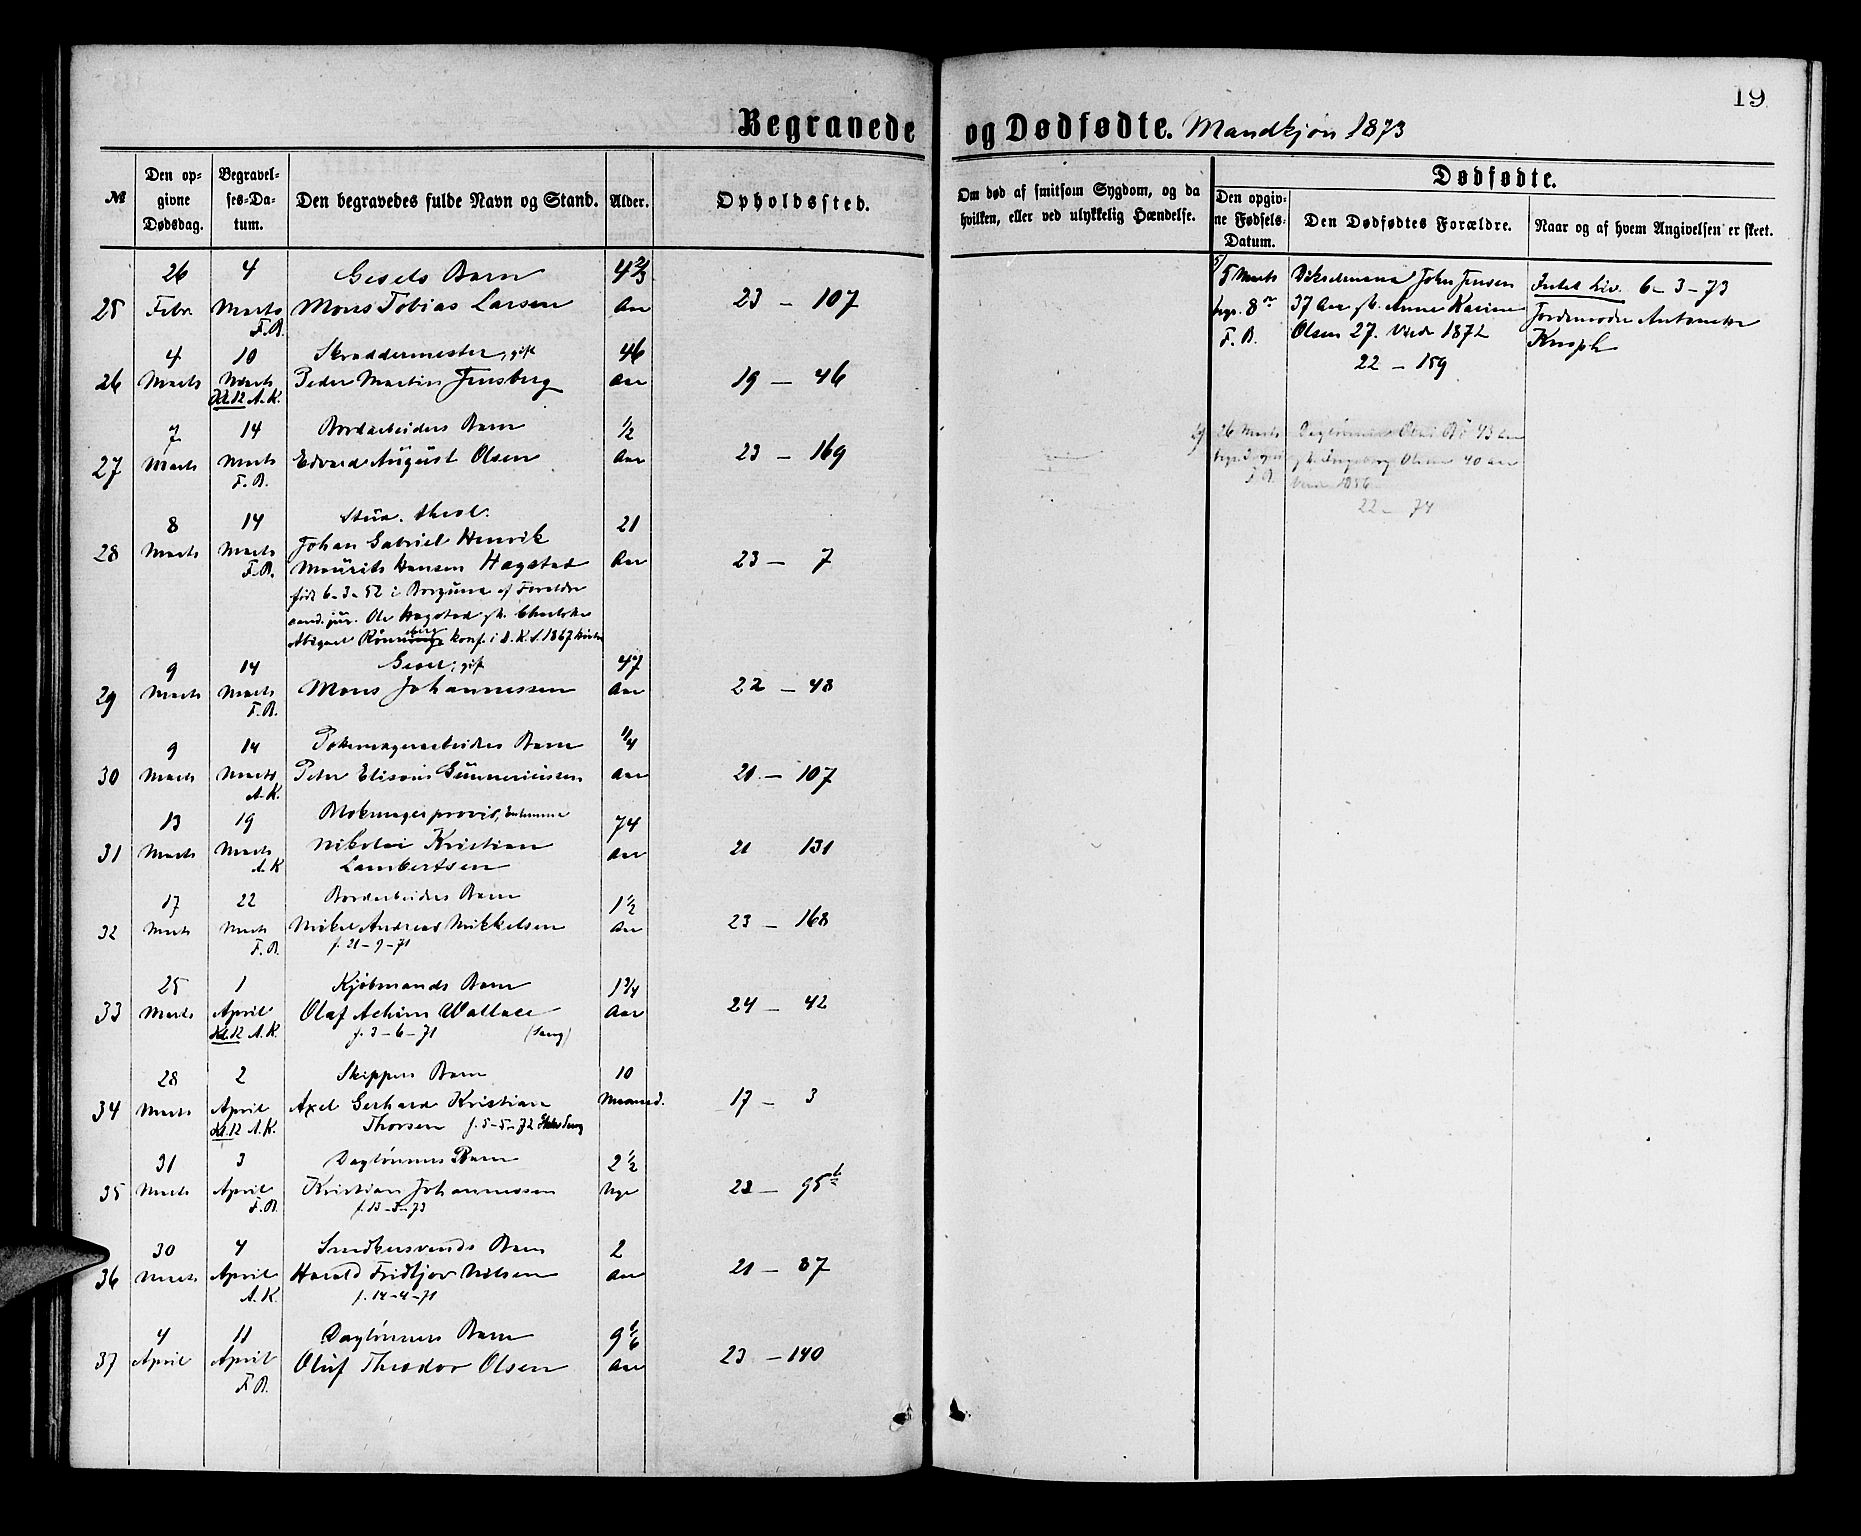 19
Begravede og Dødfødte. Mandkjøn 1873
№
Den opgivne Dødsdag.
Begravelses-Datum.
Den begravedes fulde Navn og Stand.
Alder.
Opholdssted.
Om død af smitsom Sygdom, og da hvilken, eller ved ulykkelig Hændelse.
Dødfødte.
Den opgivne Fødsels-Datum.
Den Dødfødtes Forældre.
Naar og af hvem Angivelsen er skeet.
26 4 Gesels Barn 4 2/3
25 Febr. Marts Mons Tobias Larsen Aar 23 - 107
F.B.
4 10 Skræddermester, gift 46
26 Marts Marts Peder Martin Aar 19 - 46
Kl. 12 A.K.
7 14 Bordarbeiders Barn 1/2
27 Marts Marts Edvard August Olsen Aar 23 - 169
F.B.
8 14 Stud. theol. 21
Johan Gabriel Henrik
28 Marts Marts Maurits Hansen Hagstad Aar 23 - 7
F.B.
født 6-3-52 i af Forældre
cand. jur. Ole Hagstad
Abigael konf. i 1867
9 14 Gesel, gift 47
29 Marts Marts Mons Johannessen Aar 22 - 48
F.B.
9 14 Barn 1/4
30 Marts Marts Peter Elisæus Gunneriussen Aar 21 - 107
A.K.
13 19 Blokmager 74
31 Marts Marts Nikolai Kristian Aar 21 131
A.K. Lambertsen
17 22 Bordarbeiders Barn 1 1/2
32 Marts Marts Mikel Andreas Mikkelsen Aar 23 - 168
F.B. f. 21-9-71
25 1 Kjøbmands Barn 1 3/4
33 Marts April Olaf Achim Wallace Aar 24 - 42
Kl. 12 A.K. f. 3-6-71 (Sang)
28 2 Skippers Barn 10
34 Marts April Axel Gerhard Kristian Maaned. 17 - 3
Kl. 12 A.K. Thorsen f. 5-5-72
31 3 Dagløners Barn 2 1/2
35 Marts April Kristian Johannessen Uge 23 - 95 1/2
F.B. f. 13-3-73
30 4 Smedsvends Barn 2
36 Marts April Harald Fridtjov Nilsen Aar 21 - 37
A.K. f. 14-4-71
4 11 Dagløners Barn 9 1/6
37 April April Oluf Theodor Olsen Aar 23 - 140
F.B.
5 Marts John Jensen Intet Liv. 6-3-73
begr. 8de 37 Aar Anne Karine Jordemoder Antonette
F.B. Olsen 27. Viede 1872 Knoph
22 - 159
26 Marts Dagløner 43 Aar
Ingeborg Olsen 40 Aar
F.B. 1856
22 - 74